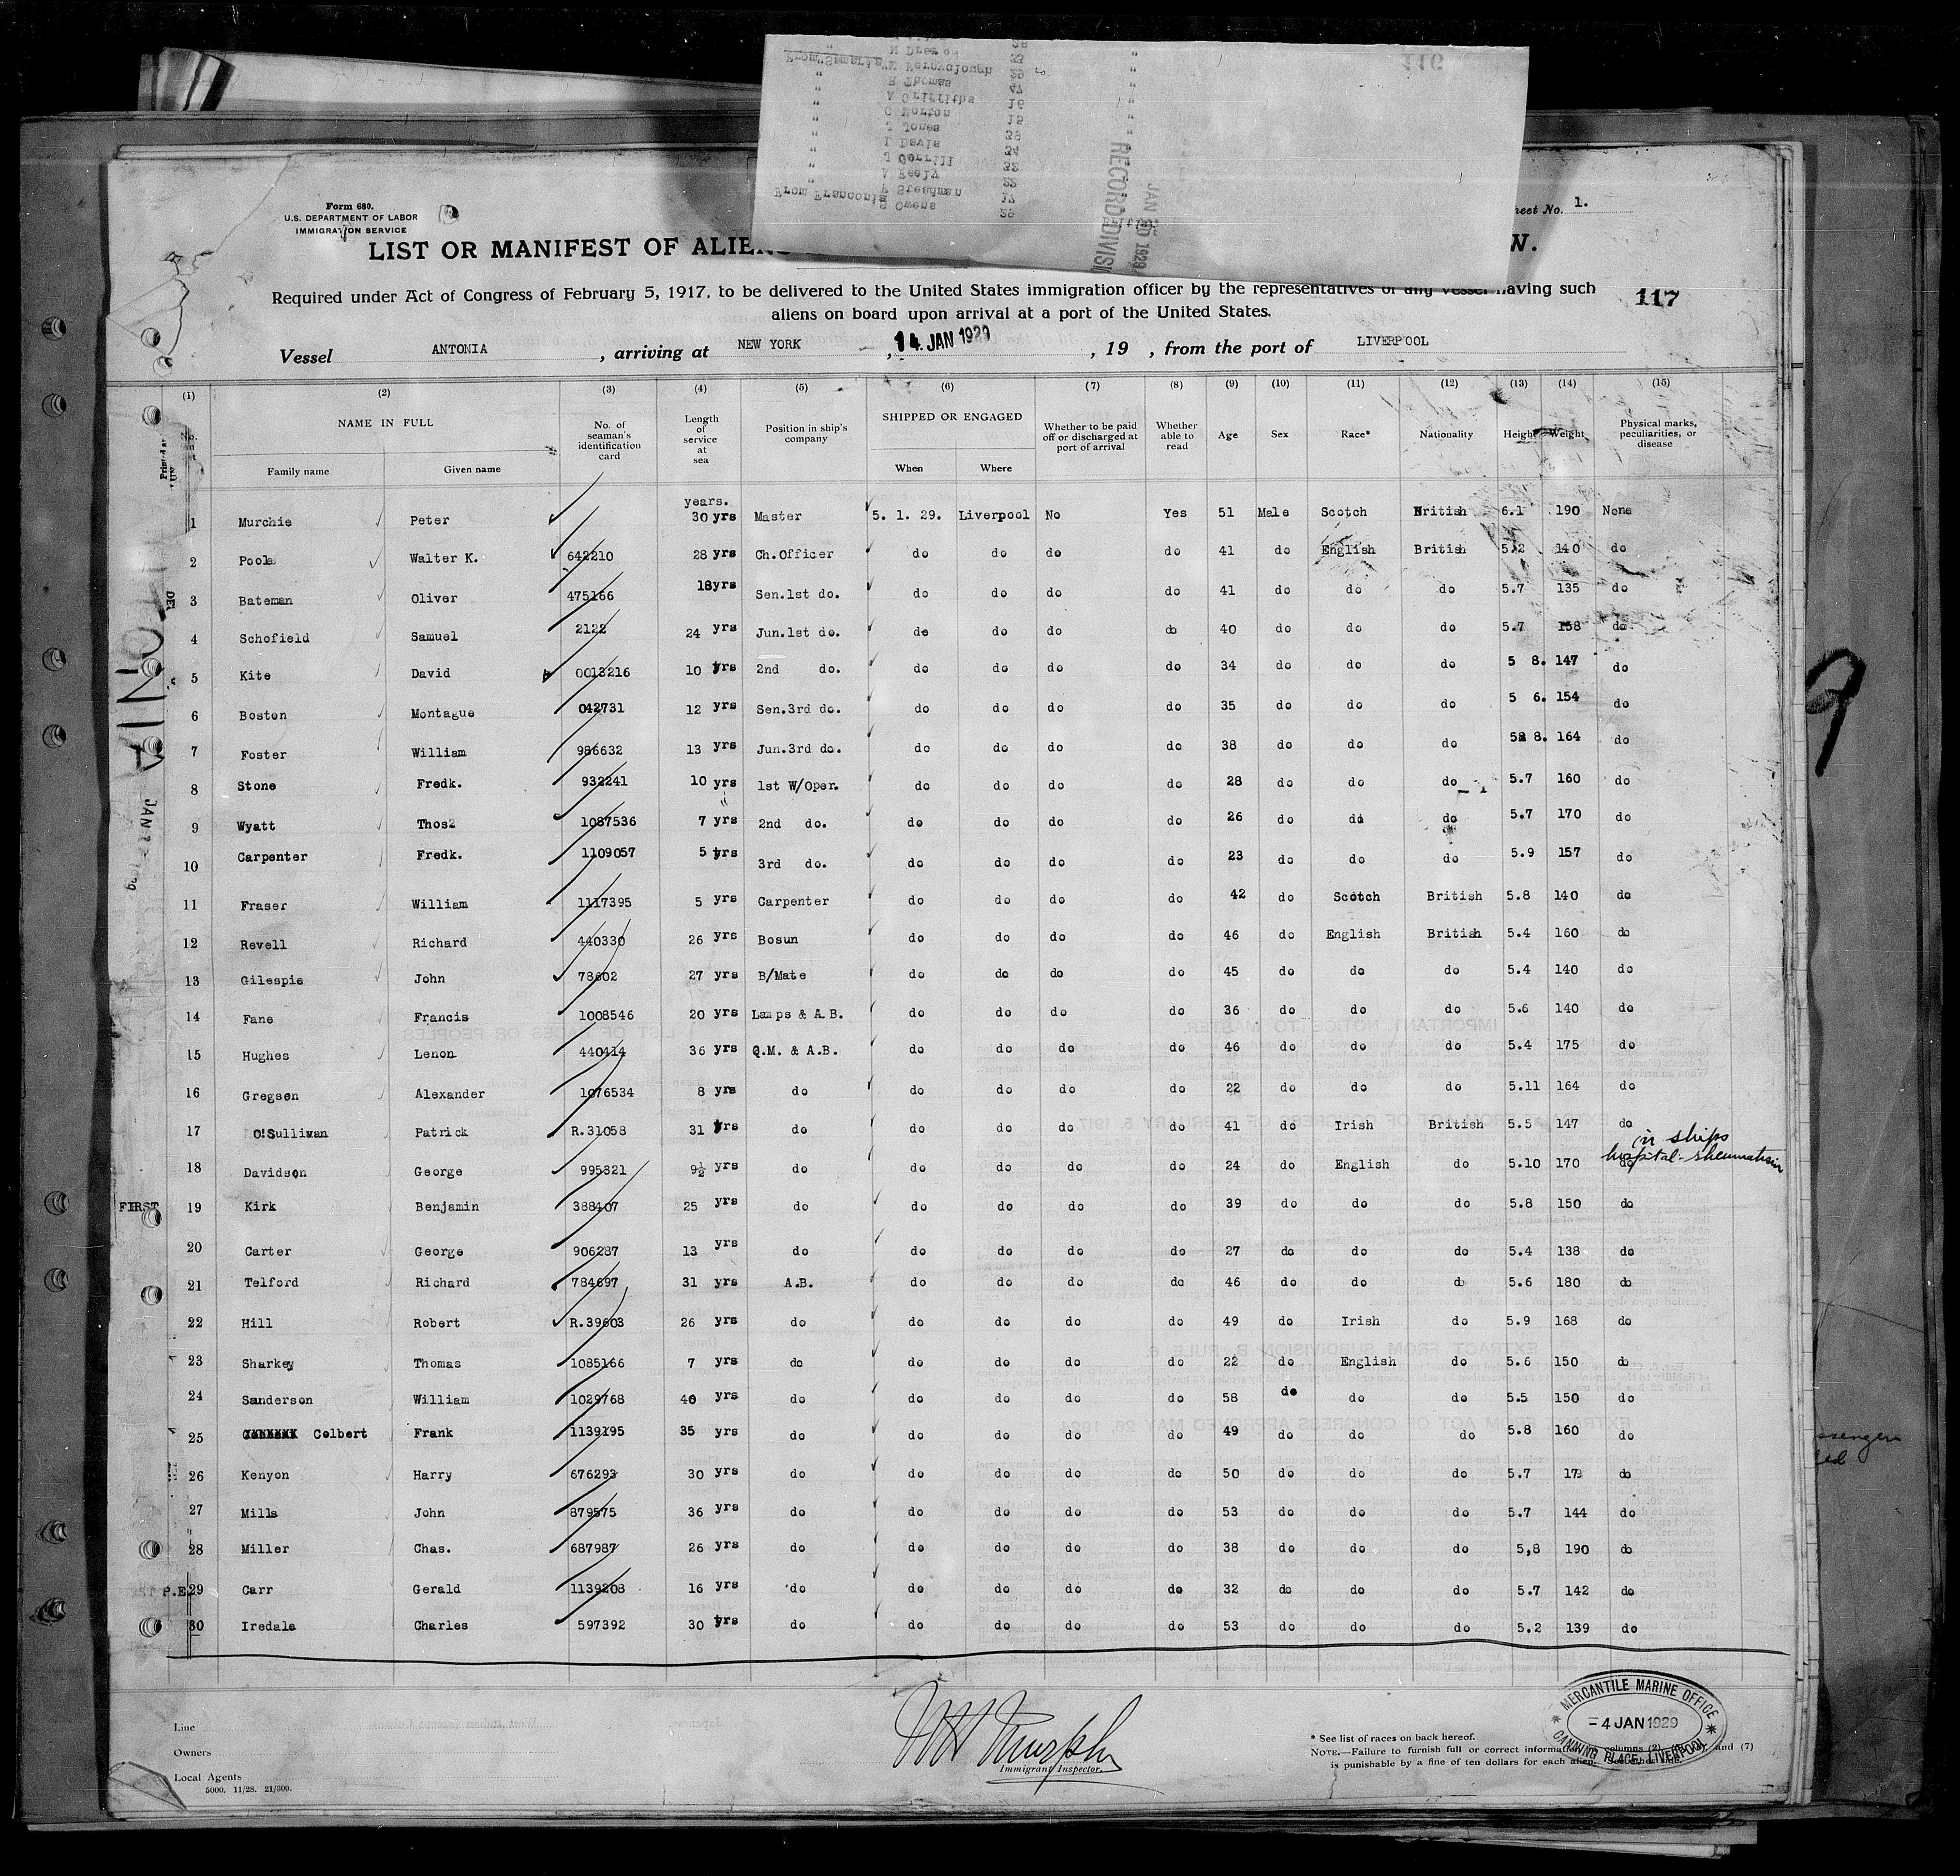 116
Form 680.
U.S. DEPARTMENT OF LABOR
IMMIGRATION SERVICE
Sheet No. 1.
LIST OR MANIFEST OF ALIENS
RECORD DIVISI
From Franconia S Owens 29
" F Steadman 17
" A Keely 22
" J Gorrill 32
" L Davis 34
" J Jones 39
" G Norton 15
" A Griffiths 16
" R Thomas 47
Required under Act of Congress of February 5, 1917, to be delivered to the United States immigration officer by the representatives of any vessel having such
aliens on board upon arrival at a port of the United States.
117
Vessel ANTONIA , arriving at NEW YORK , 14 JAN 1929 , 19 , from the port of LIVERPOOL
(1) (2) (3) (4) (5) (6) (7) (8) (9) (10) (11) (12) (13) (14) (15)
NAME IN FULL No. of seaman's identification card Length of service at sea Position in ship's company SHIPPED OR ENGAGED Whether to be paid off or discharged at port of arrival Whether able to read Age Sex Race* Nationality Height Weight Physical marks, peculiarities, or disease
Family name Given name When Where
years.
1 Murchie Peter 30 yrs Master 5. 1. 29. Liverpool No Yes 51 Male Scotch British 6.1 190 None
2 Poole Walter K. 642210 28 yrs Ch.Officer do do do do 41 do English British 5.2 140 do
3 Bateman Oliver 475166 18yrs Sen.1st do. do do do do 41 do do do 5.7 135 do
4 Schofield Samuel 2122 24 yrs Jun.1st do. do do do do 40 do do do 5.7 158 do
5 Kite David 0013216 10 yrs 2nd do. do do do do 34 do do do 5 8. 147 do
6 Boston Montague 042731 12 yrs Sen.3rd do. do do do do 35 do do do 5 6. 154 do
7 Foster William 986632 13 yrs Jun.3rd do. do do do do 38 do do do 5 8. 164 do
8 Stone Fredk. 932241 10 yrs 1st W/Oper. do do do do 28 do do do 5.7 160 do
9 Wyatt Thos 1087536 7 yrs 2nd do. do do do do 26 do do do 5.7 170 do
10 Carpenter Fredk. 1109057 5 yrs 3rd do. do do do do 23 do do do 5.9 157 do
11 Fraser William 1117395 5 yrs Carpenter do do do do 42 do Scotch British 5.8 140 do
12 Revell Richard 440330 26 yrs Bosun do do do do 46 do English British 5.4 160 do
13 Gilespie John 78602 27 yrs B/Mate do do do do 45 do do do 5.4 140 do
14 Fane Francis 1008546 20 yrs Lamps & A.B. do do do do 36 do do do 5.6 140 do
15 Hughes Lenon 440414 36 yrs Q.M. & A.B. do do do do 46 do do do 5.4 175 do
16 Gregson Alexander 1076534 8 yrs do do do do do 22 do do do 5.11 164 do
17 O'Sullivan Patrick R.31058 31 yrs do do do do do 41 do Irish British 5.5 147 do
in ships
18 Davidson George 995821 9½ yrs do do do do do 24 do English do 5.10 170 do hospital-rheumatism
FIRST 19 Kirk Benjamin 388407 25 yrs do do do do do 39 do do do 5.8 150 do
20 Carter George 906287 13 yrs do do do do do 27 do do do 5.4 138 do
21 Telford Richard 784697 31 yrs A.B. do do do do 46 do do do 5.6 180 do
22 Hill Robert R.39603 26 yrs do do do do do 49 do Irish do 5.9 168 do
23 Sharkey Thomas 1085166 7 yrs do do do do do 22 do English do 5.6 150 do
24 Sanderson William 1029768 40 yrs do do do do do 58 do do do 5.5 150 do
25 Colbert Frank 1139195 35 yrs do do do do do 49 do do do 5.8 160 do
26 Kenyon Harry 676293 30 yrs do do do do do 50 do do do 5.7 do
27 Mills John 879575 36 yrs do do do do do 53 do do do 5.7 144 do
28 Miller Chas. 687987 26 yrs do do do do do 38 do do do 5,8 190 do
P.E. 29 Carr Gerald 1139208 16 yrs do do do do do 32 do do do 5.7 142 do
30 Iredale Charles 597392 30 yrs do do do do do 53 do do do 5.2 139 do
Line
Owners
Local Agents
5000. 11/28. 21/309.
Murphy
Immigrant Inspector.
* See list of races on back hereof.
NOTE.—Failure to furnish full or correct information columns (2), and (7)
is punishable by a fine of ten dollars for each alien. See other side.
MERCANTILE MARINE OFFICE
4 JAN 1929
CANNING PLACE, LIVERPOOL